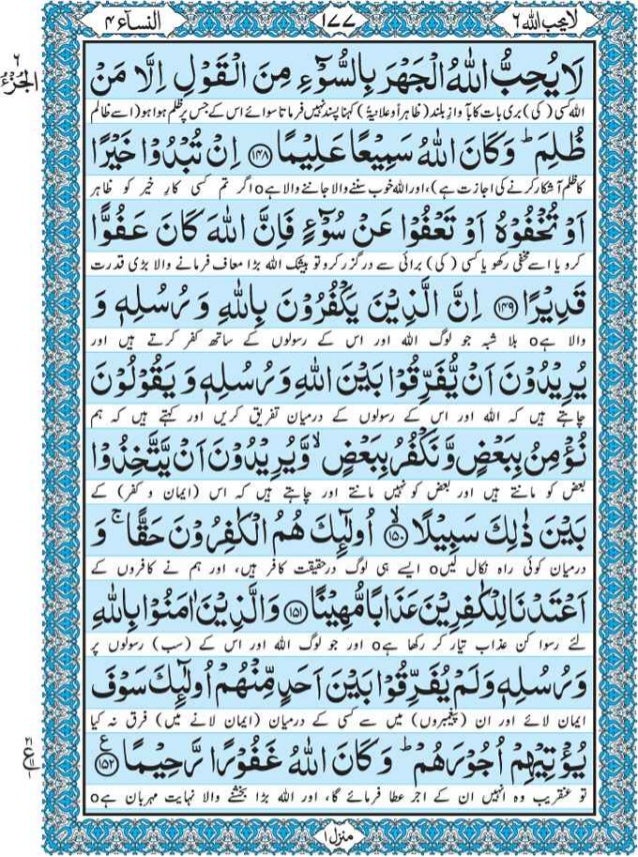 لا یحب اللہ ۶ ۱۷۷ النسآء ۴
۶
الجزء
لَا يُحِبُّ اللّٰهُ الْجَهْرَ بِالسُّوْٓءِ مِنَ الْقَوْلِ اِلَّا مَنْ
اللہ کسی (کی) بری بات کا بآوازِ بلند (ظاہراً و علانیۃً) کہنا پسند نہیں فرماتا سوائے اس کے جس پر ظلم ہوا ہو (اسے ظالم
ظُلِمَ ؕ وَ كَانَ اللّٰهُ سَمِيْعًا عَلِيْمًا ﴿۱۴۸﴾ اِنْ تُبْدُوْا خَيْرًا
کا ظلم آشکار کرنے کی اجازت ہے)، اور اللہ خوب سننے والا جاننے والا ہےo اگر تم کسی کارِ خیر کو ظاہر
اَوْ تُخْفُوْهُ اَوْ تَعْفُوْا عَنْ سُوْٓءٍ فَاِنَّ اللّٰهَ كَانَ عَفُوًّا
کرو یا اسے مخفی رکھو یا کسی (کی) برائی سے درگزر کرو تو بیشک اللہ بڑا معاف فرمانے والا بڑی قدرت
قَدِيْرًا ﴿۱۴۹﴾ اِنَّ الَّذِيْنَ يَكْفُرُوْنَ بِاللّٰهِ وَ رُسُلِهٖ وَ
والا ہےo بلا شبہ جو لوگ اللہ اور اس کے رسولوں کے ساتھ کفر کرتے ہیں اور
يُرِيْدُوْنَ اَنْ يُّفَرِّقُوْا بَيْنَ اللّٰهِ وَ رُسُلِهٖ وَ يَقُوْلُوْنَ
چاہتے ہیں کہ اللہ اور اس کے رسولوں کے درمیان تفریق کریں اور کہتے ہیں کہ ہم
نُؤْمِنُ بِبَعْضٍ وَّ نَكْفُرُ بِبَعْضٍ ۙ وَّ يُرِيْدُوْنَ اَنْ يَّتَّخِذُوْا
بعض کو مانتے ہیں اور بعض کو نہیں مانتے اور چاہتے ہیں کہ اس (ایمان و کفر) کے
بَيْنَ ذٰلِكَ سَبِيْلًا ﴿۱۵۰﴾ ۙ اُولٰٓئِكَ هُمُ الْكٰفِرُوْنَ حَقًّا ۚ وَ
درمیان کوئی راہ نکال لیںo ایسے ہی لوگ درحقیقت کافر ہیں، اور ہم نے کافروں کے
اَعْتَدْنَا لِلْكٰفِرِيْنَ عَذَابًا مُّهِيْنًا ﴿۱۵۱﴾ وَ الَّذِيْنَ اٰمَنُوْا بِاللّٰهِ
لئے رسوا کن عذاب تیار کر رکھا ہےo اور جو لوگ اللہ اور اس کے (سب) رسولوں پر
وَ رُسُلِهٖ وَ لَمْ يُفَرِّقُوْا بَيْنَ اَحَدٍ مِّنْهُمْ اُولٰٓئِكَ سَوْفَ
ایمان لائے اور ان (پیغمبروں) میں سے کسی کے درمیان (ایمان لانے میں) فرق نہ کیا
يُؤْتِيْهِمْ اُجُوْرَهُمْ ؕ وَ كَانَ اللّٰهُ غَفُوْرًا رَّحِيْمًا ﴿۱۵۲﴾ ع
تو عنقریب وہ انہیں ان کے اجر عطا فرمائے گا، اور اللہ بڑا بخشنے والا نہایت مہربان ہےo
۲۱
ع ۱۱
۱
منزل ۱